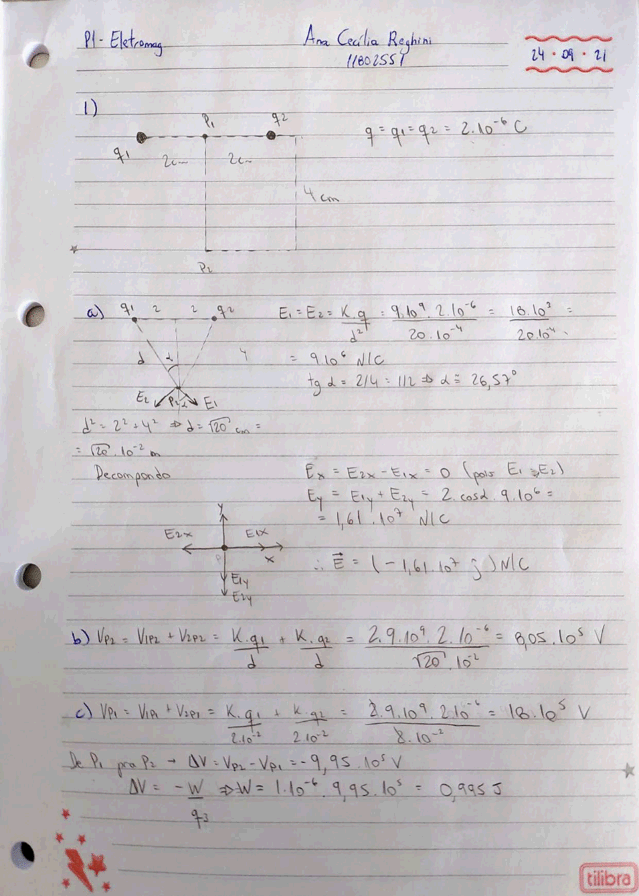 P1 - Eletromag
Ana Cecília Reghini
11802551
24 · 09 · 21
1)
P1 q2
q1
2cm 2cm
q = q1 = q2 = 2.10^-6 C
4 cm
P2
a) q1 2 2 q2
d α 4
E2 P2 α E1
E1 = E2 = K.q/d² = 9.10^9. 2.10^-6/20.10^-4 = 18.10^3/20.10^-4 =
= 9.10^6 N/C
tg α = 2/4 = 1/2 ⇒ α ≅ 26,57°
d² = 2² + 4² ⇒ d = √20 cm =
= √20 . 10^-2 m
Decompondo
Ex = E2x - E1x = 0 (pois E1 = E2)
Ey = E1y + E2y = 2. cosα. 9.10^6 =
= 1,61 . 10^7 N/C
y
E2x E1x
x
E1y
E2y
∴ E⃗ = (-1,61.10^7 j) N/C
b) VP2 = V1P2 + V2P2 = K.q1/d + K.q2/d = 2.9.10^9. 2.10^-6/√20 . 10^-2 = 8,05. 10^5 V
c) VP1 = V1P1 + V2P1 = K.q1/2.10^-2 + K.q2/2.10^-2 = 2.9.10^9. 2.10^-6 = 18.10^5 V
De P1 pra P2 → ΔV = VP2 - VP1 = -9,95 . 10^5 V
ΔV = -W/q3 ⇒ W = 1.10^-6 . 9,95. 10^5 = 0,995 J
tilibra